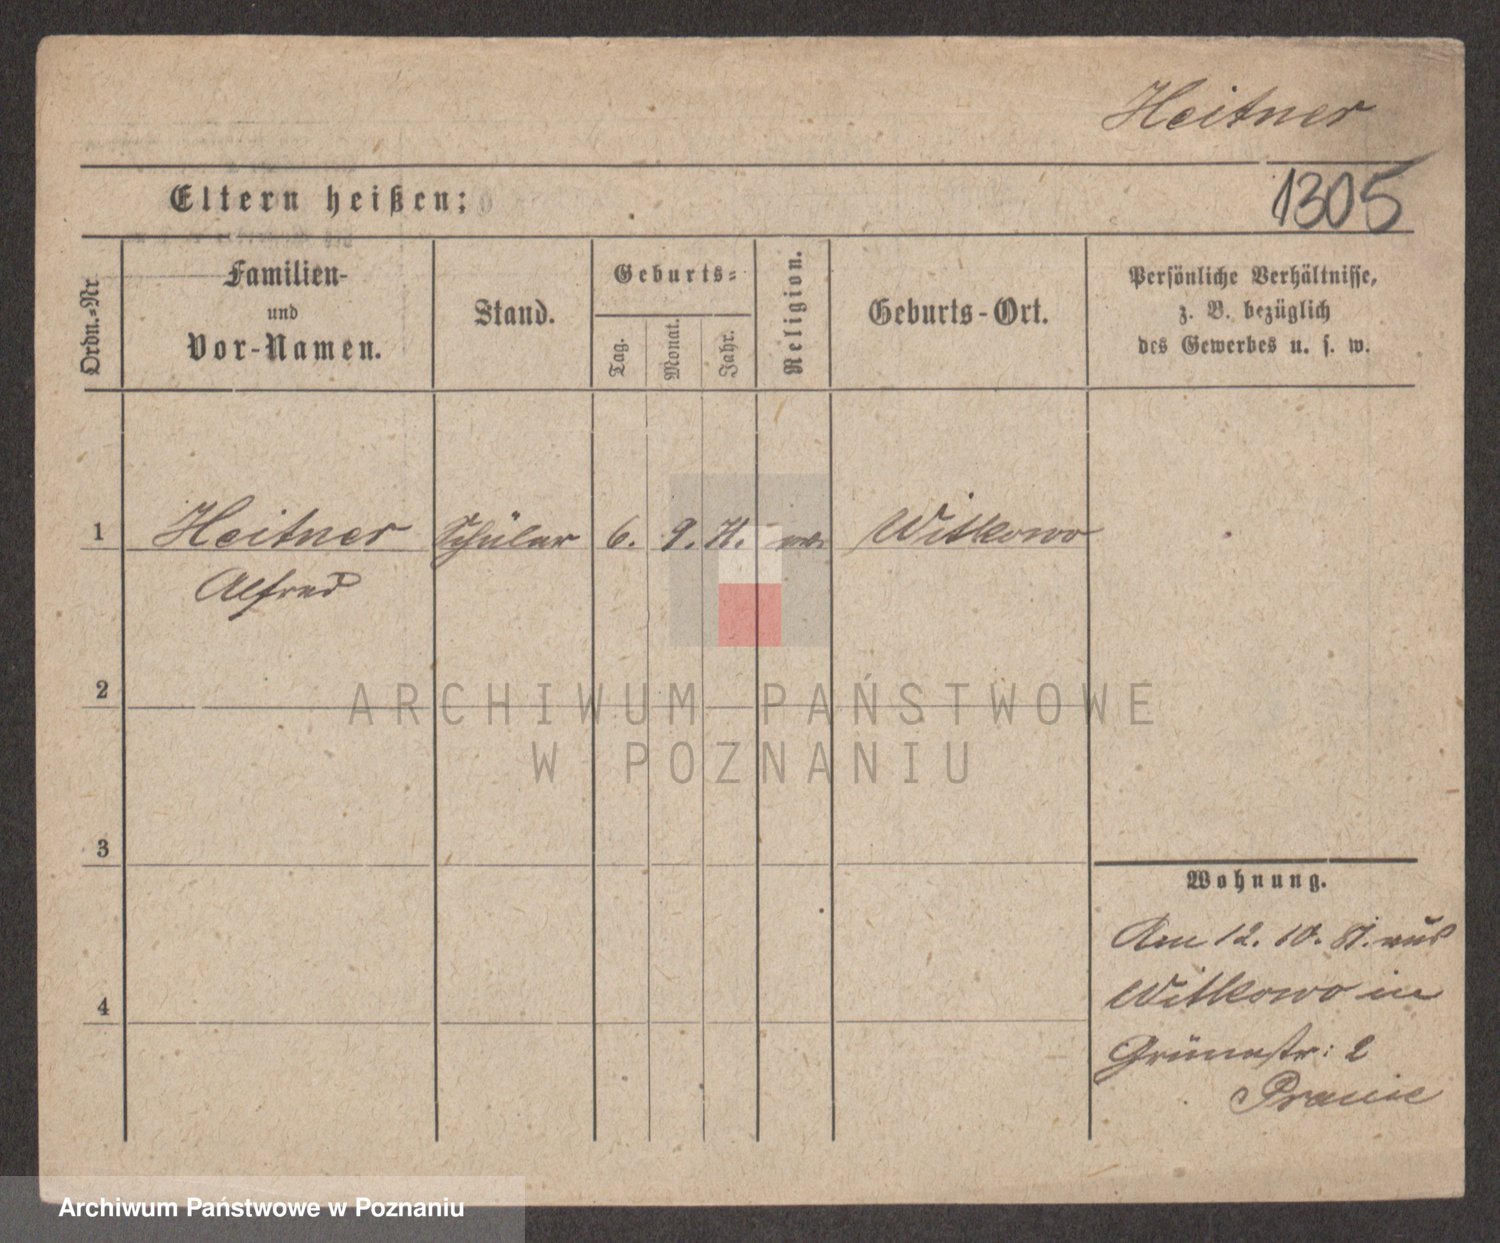 Heitner
1305
Eltern heißen:
Ordn.-Nr
Familien-
und
Vor-Namen.
Stand.
Geburts-
Tag.
Monat.
Jahr.
Religion.
Geburts-Ort.
Persönliche Verhältnisse,
z. B. bezüglich
des Gewerbes u. s. w.
1 Heitner Schüler 6. 9. 71. ev. Witkowo
Alfred
2
3
4
ARCHIWUM PAŃSTWOWE
W POZNANIU
Wohnung.
Am 12. 10. 81. aus
Witkowo in
Grünestr: 2
Archiwum Państwowe w Poznaniu